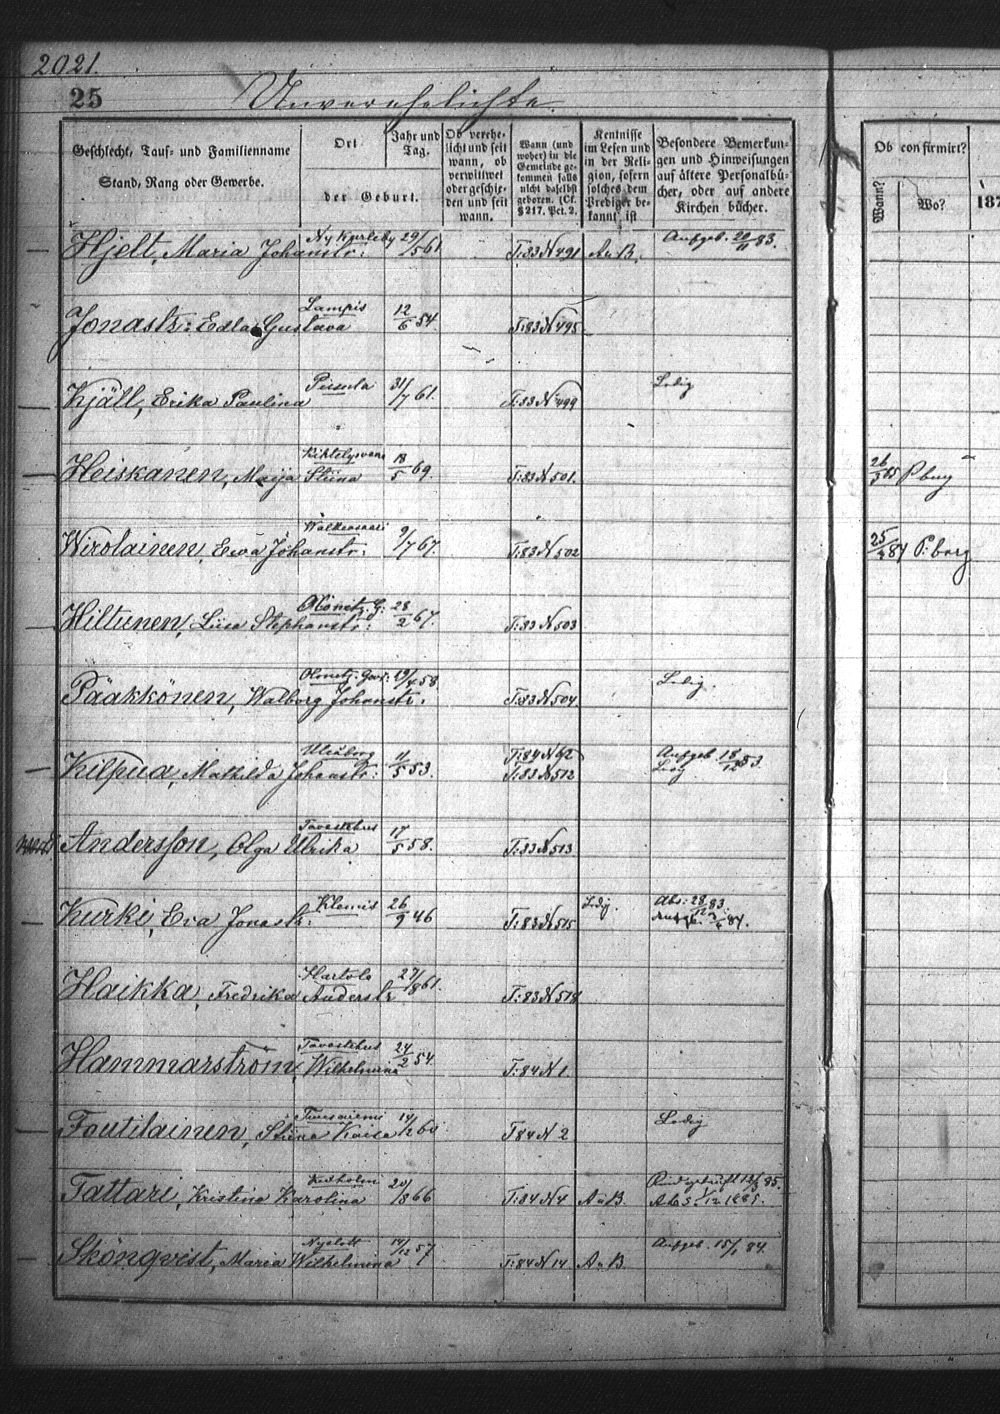 2021.
25
Unverehelichte.
Geschlecht, Tauf- und Familienname
Stand, Rang oder Gewerbe.
Ort
Jahr und Tag.
der Geburt.
Ob verehe-
licht und seit
wann, ob
verwittwet
oder geschie-
den und seit
wann.
Wann (und
woher) in die
Gemeinde ge-
kommen falls
nicht daselbst
geboren. (Cf.
§ 217. Pct. 2.
Kentnisse
im Lesen und
in der Reli-
gion, sofern
solches dem
Prediger be-
kannt ist
Besondere Bemerkun-
gen und Hinweisungen
auf ältere Personalbü-
cher, oder auf andere
Kirchen bücher.
Ob confirmirt?
Wann?
Wo?
187
Hjelt, Maria Johanstr: Ny Karleby 29/5 61 T:83 N 491 A u B. Aufgeb. 20/11 83.
Jonastr: Edla Gustava Lampis 12/6 54. T:83 N 495
Kjäll, Erika Paulina Pusula 31/7 61. T:83 N 499 Ledig
Heiskanen, Maija Stiina Kihtelysvaara 18/5 69. T:83 N 501. 26/5 85 P.burg
Wirolainen, Ewa Johanstr: Walkeasaari 9/7 67. T:83 N 502 25/4 87 P:borg
Hiltunen, Liisa Stephanstr: Olonetz. G: 28/2 67. T:83 N 503
Pääkkönen, Walborg Johanstr: Olonetz. Gov: 19/4 58. T:83 N 504 Ledig.
Kilpua, Mathilda Johanstr: Uleåborg 11/5 53. T:84 N 62 T:83 N 512 Aufgeb. 18/12 83. Ledig
Andersson, Olga Ulrika Tavastehus 17/5 58. T:83 N 513
Kurki, Eva Jonastr: Klemis 26/9 46 T:83 N 515 Ledig. Abs: 28/12 83. Aufgb. 84.
Haikka, Fredrika Anderstr Hartola 27/8 61. T:83 N 518
Hammarström, Wilhelmina Tavastehus 24/2 54. T:84 N 1.
Foutilainen, Stiina Kaisa Tuusniemi 14/12 60 T 84 N 2 Ledig
Tattari, Kristina Karolina Kexholm 20/8 66 T:84 N 4 A u B. 12/3 85. Abs. 1/12 1885.
Skönqvist, Maria Wilhelmina Nyslott 14/12 57 T:84 N 14 A u B Aufgeb. 15/1 84.